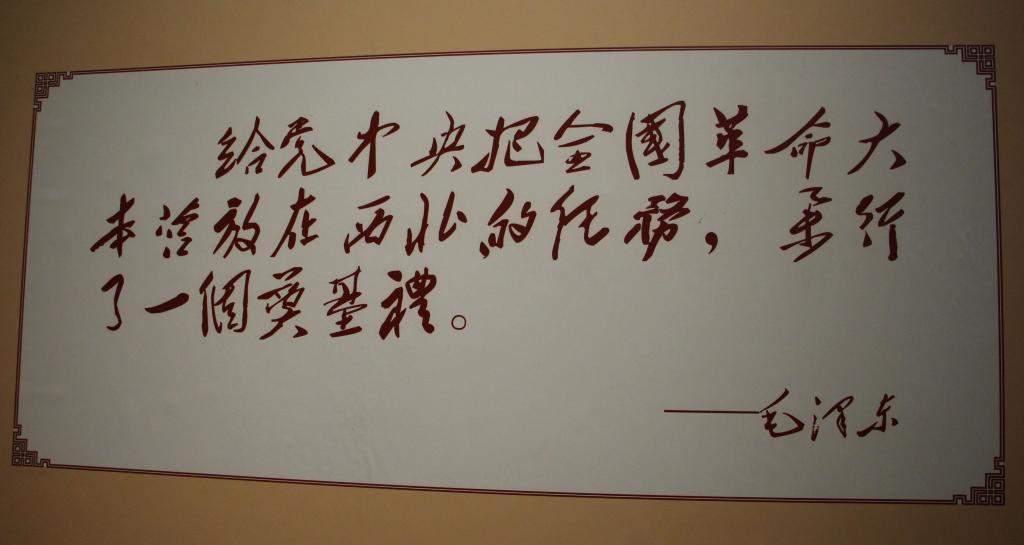 给党中央把全國革命大
本营放在西北的任務，举行
了一個奠基禮。
——毛泽东